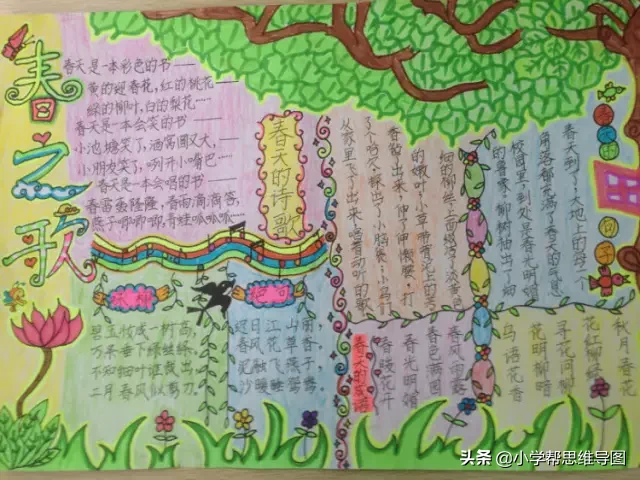 春之歌
春天是一本彩色的书——
黄的迎春花,红的桃花——
绿的柳叶,白的梨花……
春天是一本会笑的书——
小池塘笑了,酒窝圆又大,——
小朋友笑了,咧开小嘴巴——
春天是一本会唱的书——
春雷轰隆隆,春雨滴滴答,
燕子唧唧唧,青蛙呱呱呱——
春天的诗歌
咏柳
碧玉妆成一树高,
万条垂下绿丝绦。
不知细叶谁裁出,
二月春风似剪刀。
绝句
迟日江山丽,
春风花草香。
泥融飞燕子,
沙暖睡鸳鸯。
春天的句子
春天到了,大地上的每一个
角落都充满了春天的气息
校园里,到处是春光明媚
的景象,柳树抽出了细
细的柳丝,上面缀满了淡黄色
的嫩叶,小草带着泥土的芳
香钻了出来,伸了伸懒腰,打
了个哈欠,探出了小脑袋;小鸟们
从窝里飞了出来,唱着动听的歌
春天的成语
秋月春花
花红柳绿
寻花问柳
花明柳暗
鸟语花香
春风雨露
春色满园
春光明媚
春暖花开
头条 @小学帮思维导图